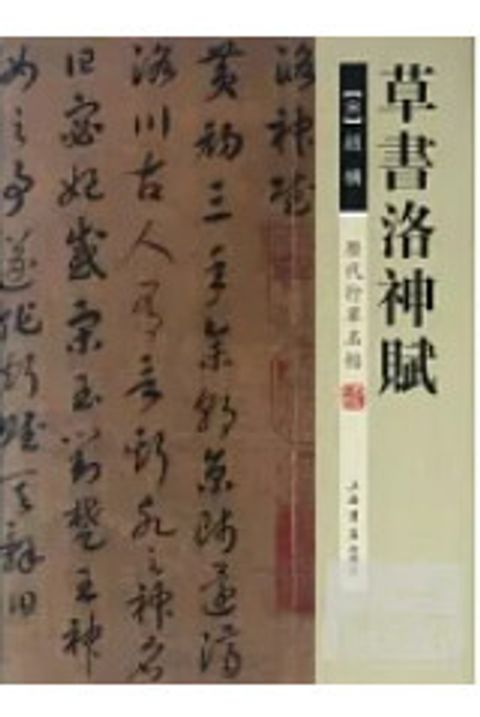 草書洛神賦
【宋】趙構
歷代行草名帖
上海書店出版社
洛神賦
黃初三年余朝京師還濟
洛川古人有言斯水之神名
曰宓妃感宋玉對楚王神
女之事遂作斯賦其辭曰